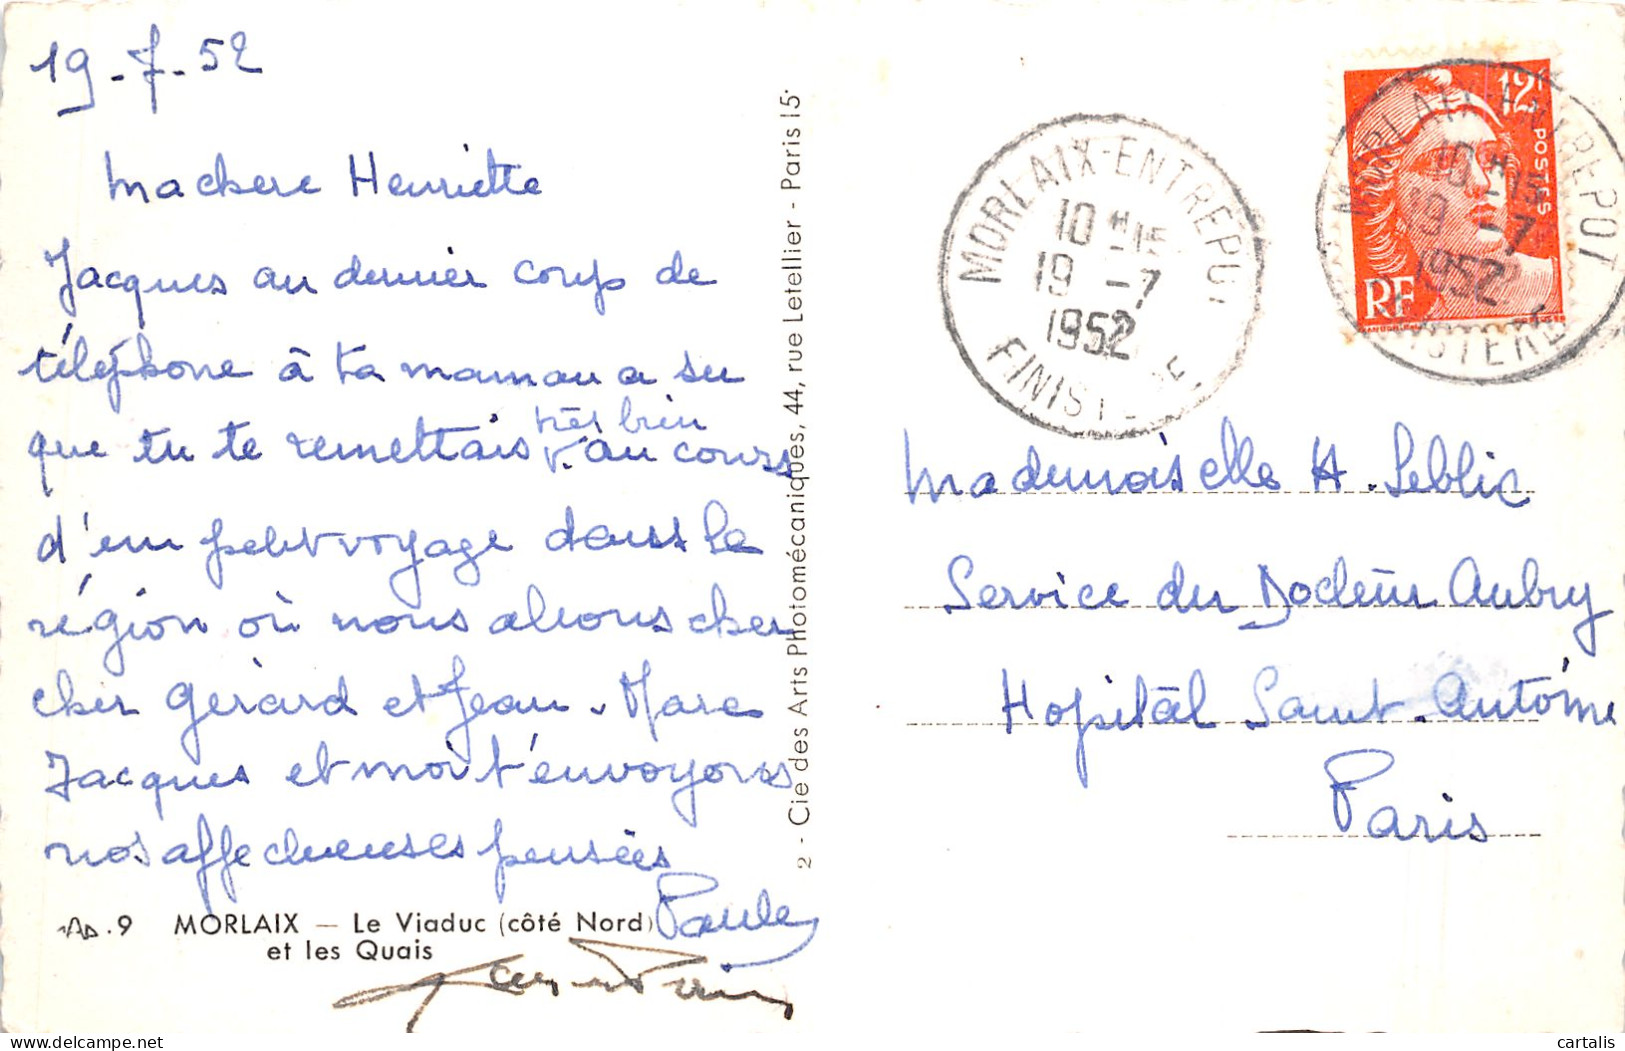 19-7-52
Ma chère Henriette
Jacques au dernier coup de
téléphone à ta maman a su
que tu te remettais très bien au cours
d'un petit voyage dans la
région où nous allions cher
cher Gérard et Jean-Marc
Jacques et moi t'envoyons
nos affectueuses pensées
Paule
9 MORLAIX — Le Viaduc (côté Nord)
et les Quais
2 - Cie des Arts Photomécaniques, 44, rue Letellier - Paris 15·
MORLAIX-ENTREPOT
10H15
19 -7
1952
FINISTERE
12F
POSTES
RF
MORLAIX-ENTREPOT
10H15
19 -7
1952
FINISTERE
Mademoiselle H. Leblic
Service du Docteur Aubry
Hopital Saint-Antoine
Paris
cartalis